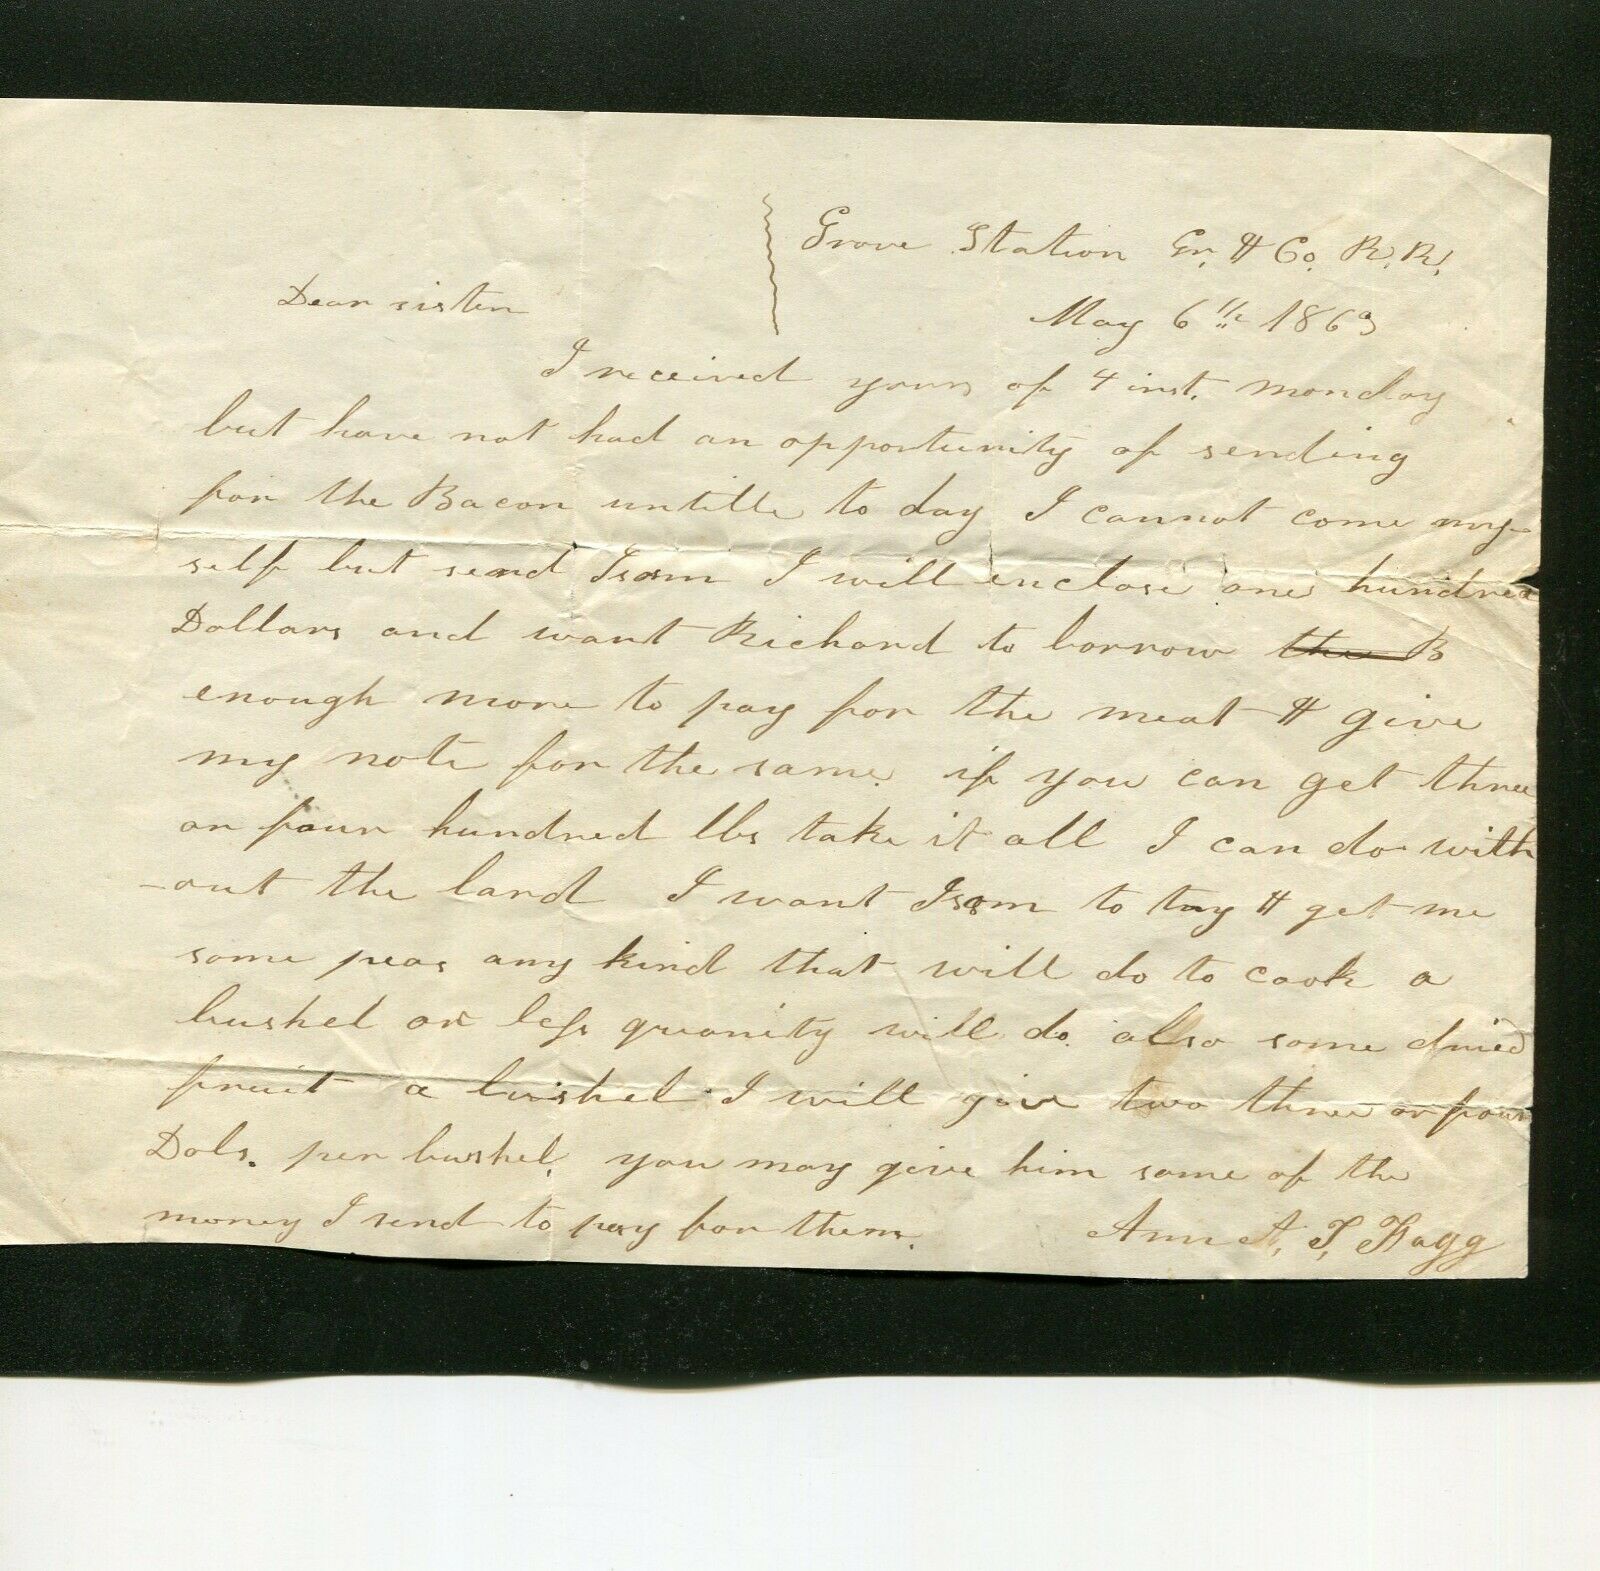 Grove Station Gr. & Co. R. R.
May 6th 1863
Dear sister
I received yours of 4 inst. monday
but have not had an opportunity of sending
for the Bacon untille to day I cannot come my-
self but send Isom I will enclose one hundred
Dollars and want Richard to borrow the B
enough more to pay for the meat & give
my note for the same. if you can get three
or four hundred lbs take it all I can do with
-out the lard I want Isom to try & get me
some peas any kind that will do to cook a
bushel or less quanity will do. also some dried
fruit a bushel I will give two three or four
Dols. per bushel, you may give him some of the
money I send to pay for them.
Ann A. T.